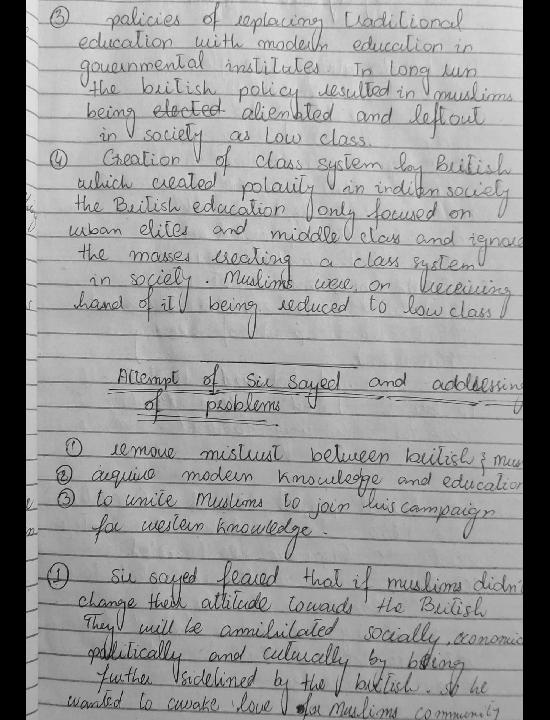 ③ policies of replacing traditional
education with modern education in
governmental institutes. In long run
the british policy resulted in muslims
being elected alienated and left out
in society as Low class.
④ Creation of class system by British
which created polarity in indian society
the British education only focused on
urban elites and middle class and ignore
the masses creating a class system
in society. Muslims were on receiving
hand of it being reduced to low class
Attempt of Sir Sayed and addressing
of problems
① remove mistrust between british & mus
② acquire modern knowledge and education
③ to unite Muslims to join his campaign
for western knowledge.
① Sir sayed feared that if muslims didn'
change their attitude towards the British
They will be annihilated socially, economic
politically and culturally by being
further sidelined by the british. so he
wanted to awake love for Muslims community